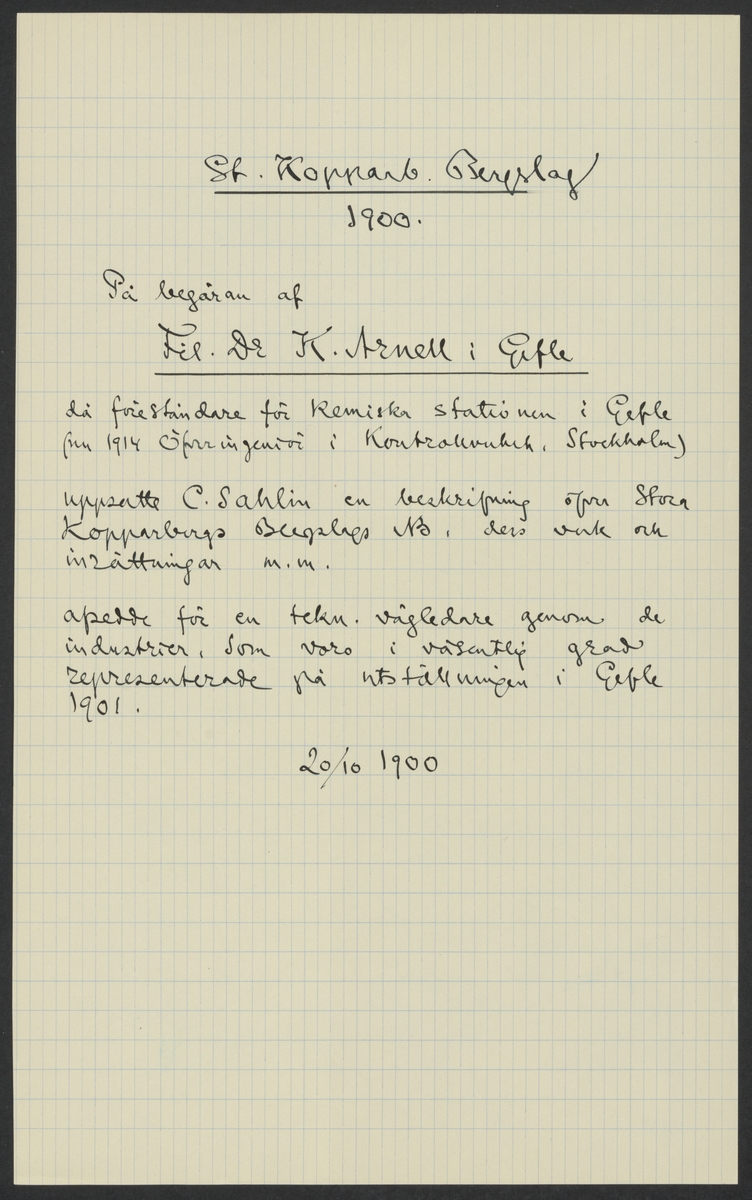 St. Kopparb. Bergslag
1900.
På begäran af
Fil. Dr K. Arnell i Gefle
då föreståndare för kemiska stationen i Gefle
(nu 1914 Öfveringeniör i Kontrollverket, Stockholm)
uppsatte C. Sahlin en beskrifning öfver Stora
Kopparbergs Bergslags AB, dess verk och
inrättningar m.m.
afsedd för en tekn. vägledare genom de
industrier, som voro i väsentlig grad
representerade på utställningen i Gefle
1901.
20/10 1900